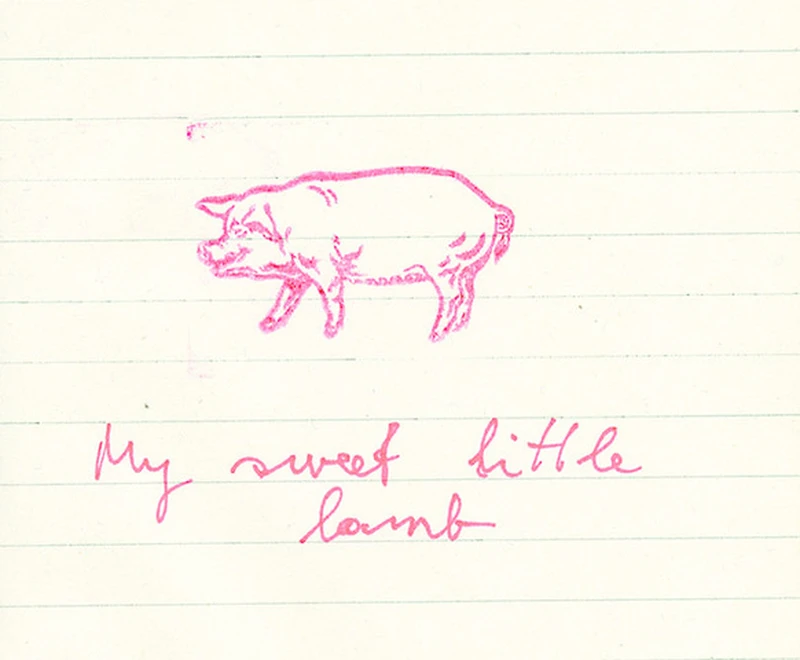 My sweet little
lamb